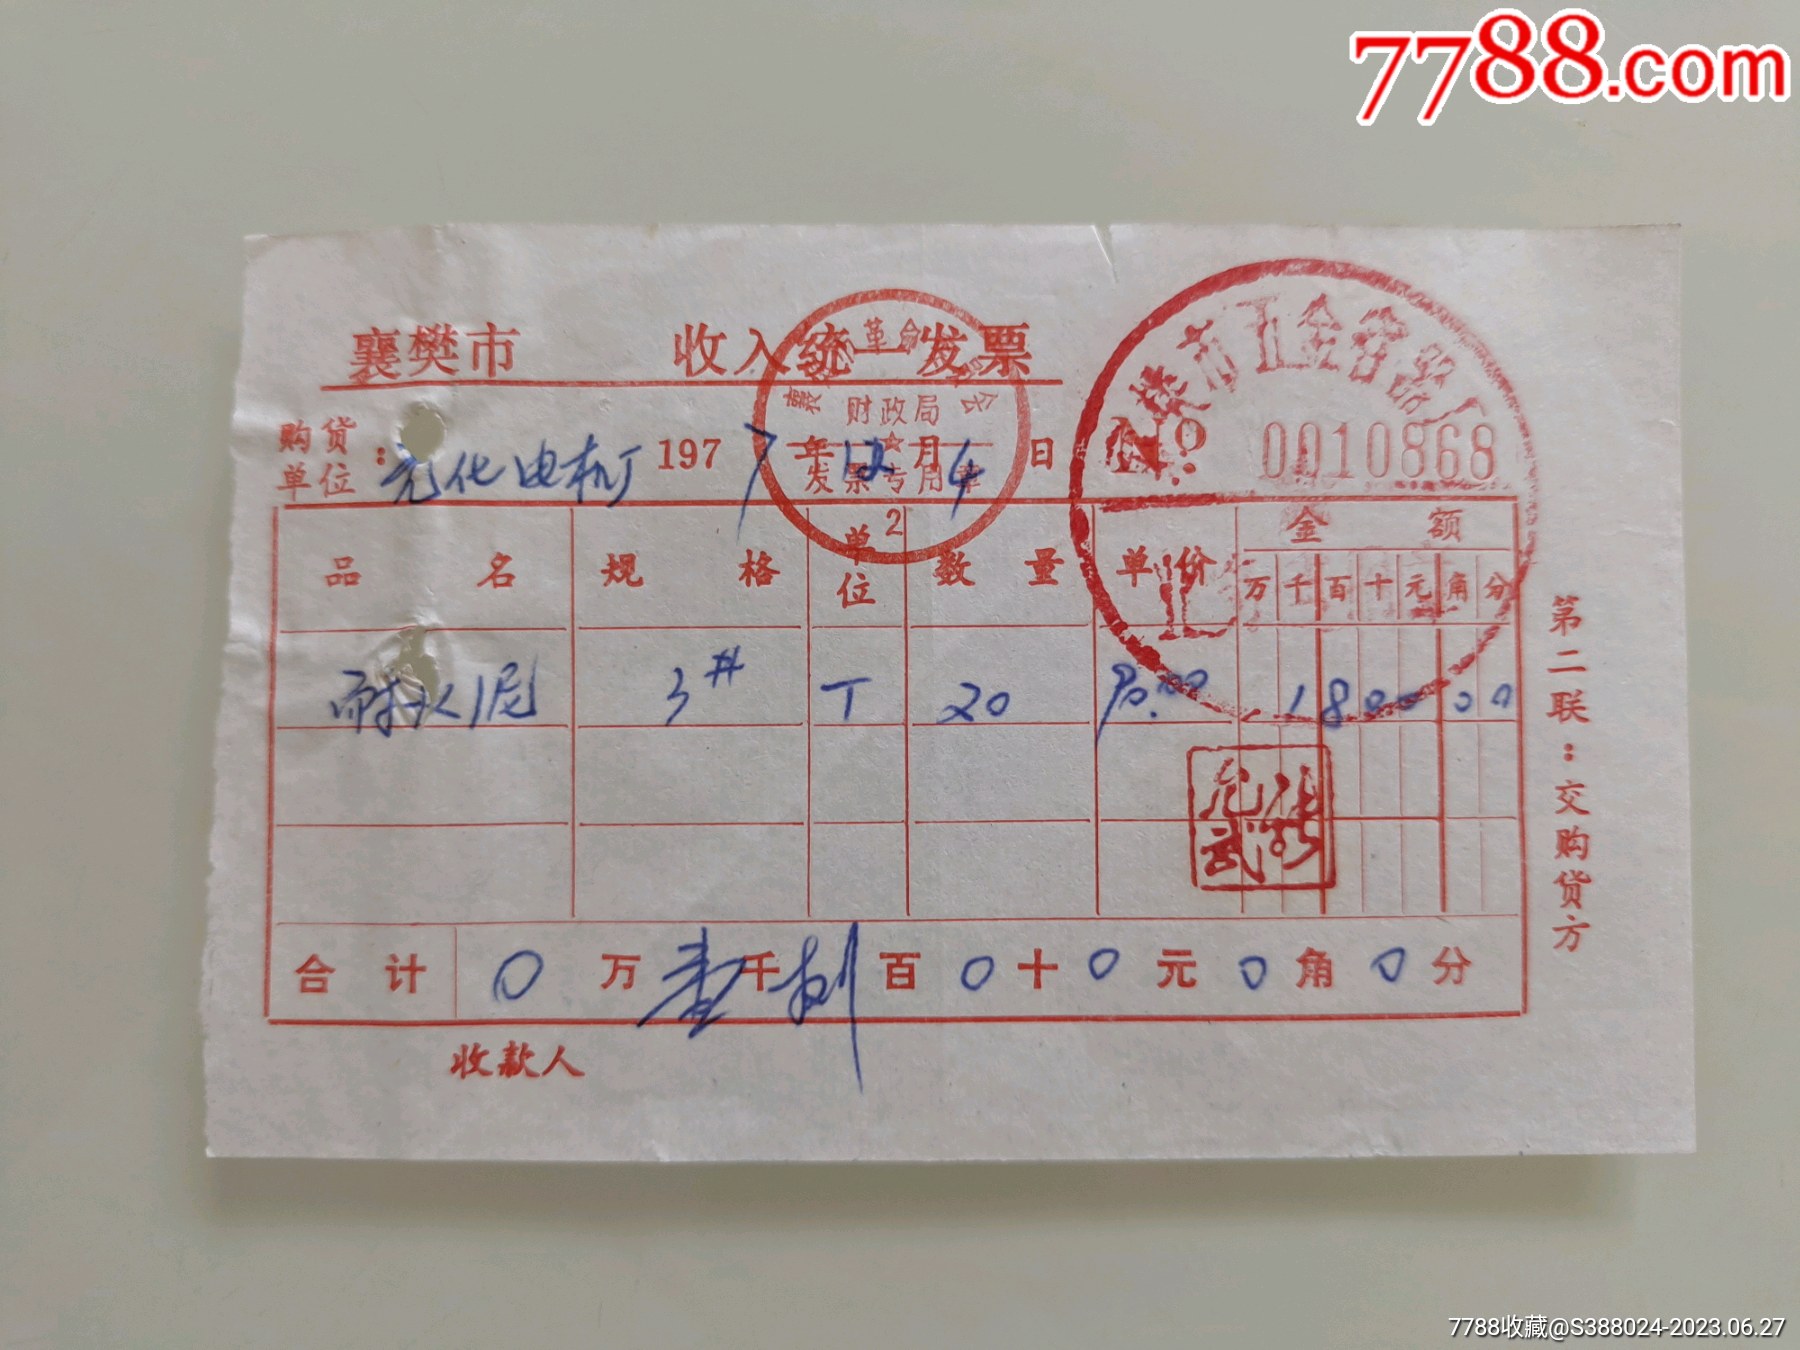 7788.com
襄樊市 收入统一发票
财政局
发票专用章
2
市五金容器厂
购货单位：光化电机厂 1977年12月4日 No. 0010868
品名 规格 单位 数量 单价 金额
万 千 百 十 元 角 分
耐火泥 3# T 20 90.00 1 8 0 0 0 0
合计 0万壹千捌百0十0元0角0分
收款人
第二联：交购货方
7788收藏@S388024-2023.06.27